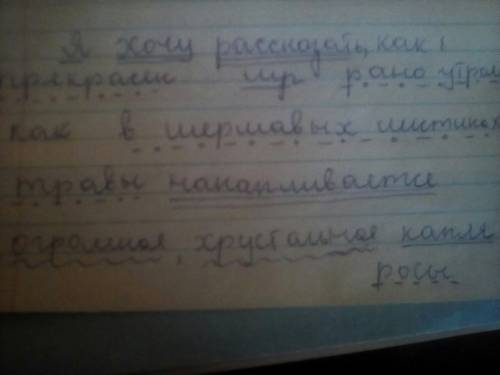 Я хочу рассказать, как
прекрасен мир рано утром
как в шершавых листиках
травы накапливается
огромная, хрустальная капля
росы